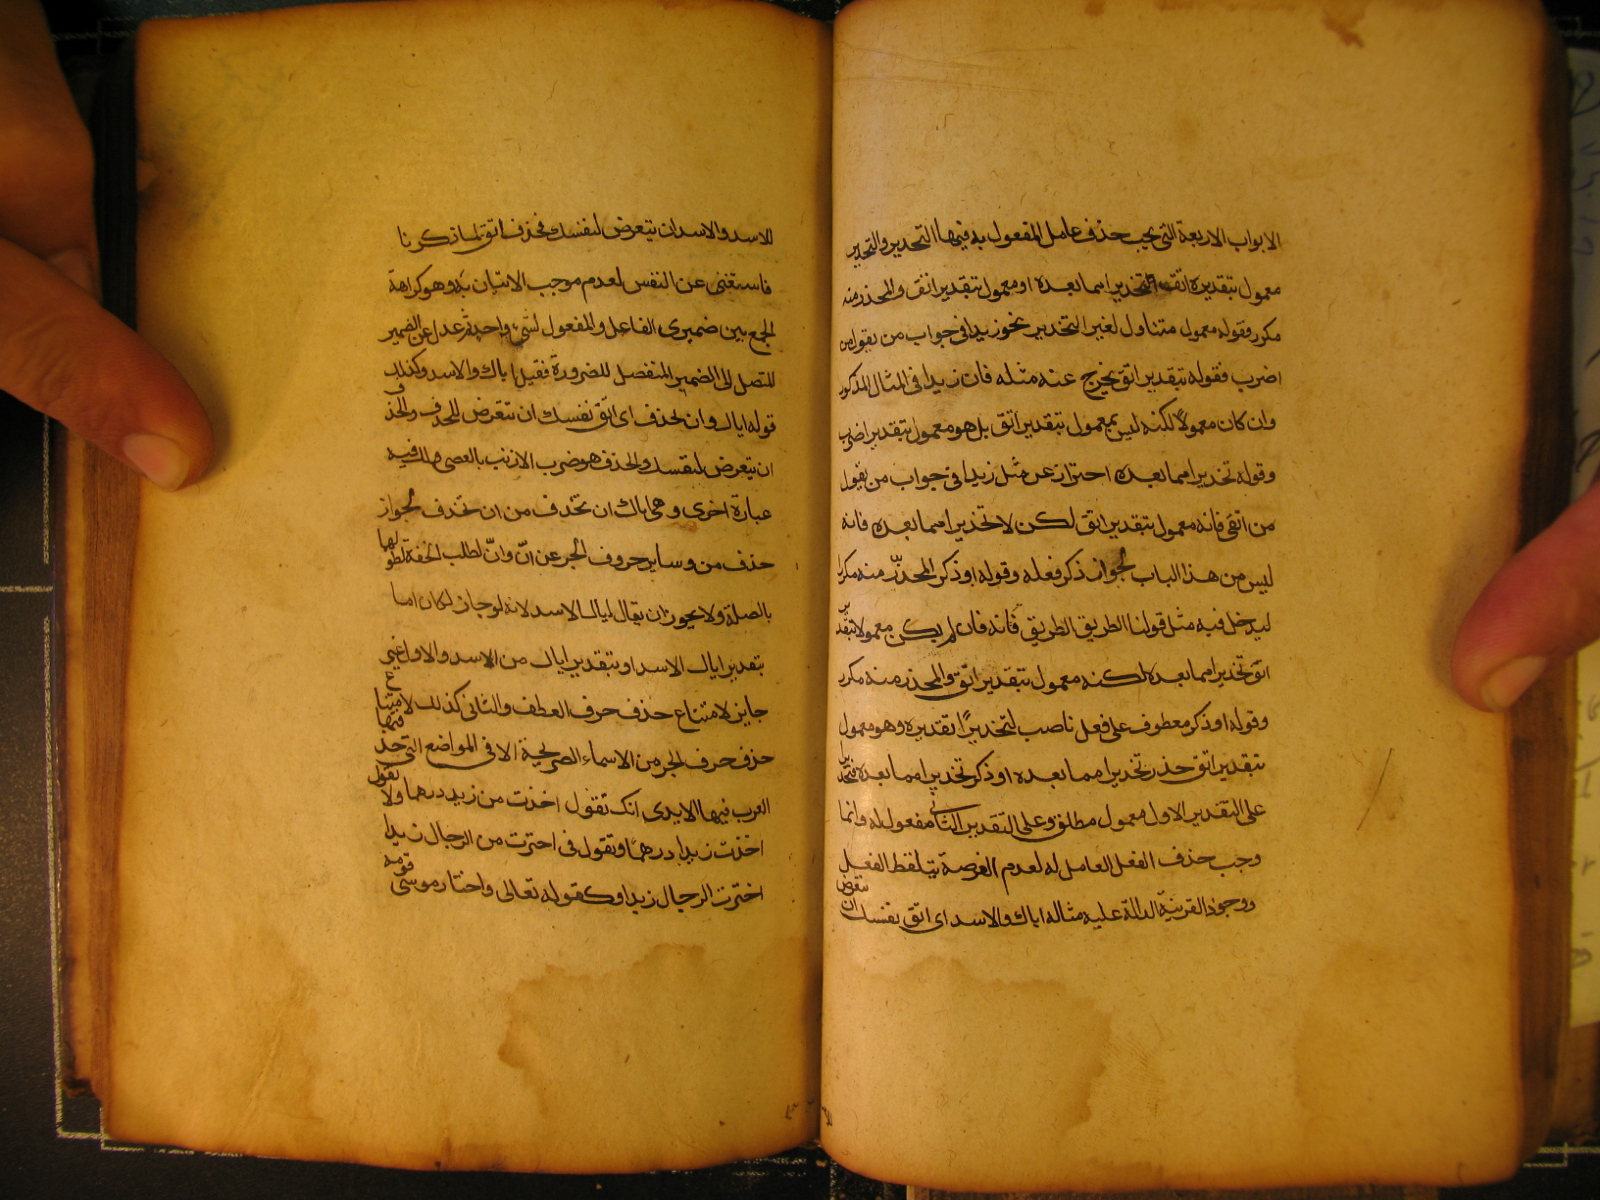 الابواب الاربعة التى يجب حذف عامل المفعول به فيها التحذير والتحذير
معمول بتقدير اتق تحذيرا مما بعده او معمول بتقدير اتق والمحذر منه
مكرر فقوله معمول متناول لغير التحذير نحو زيدا فى جواب من يقول من
اضرب فقوله بتقدير اتق يخرج عنه مثله فان زيدا فى المثال المذكور
وان كان معمولا لكنه ليس بمعمول بتقدير اتق بل هو معمول بتقدير اضرب
وقوله تحذيرا مما بعده احتراز عن مثل زيدا فى جواب من يقول
من اتقى فانه معمول بتقدير اتق لكن لا تحذيرا مما بعده فانه
ليس من هذا الباب لجواز ذكر فعله وقوله او ذكر المحذّر منه مكررا
ليدخل فيه مثل قولنا الطريق الطريق فانه فان لم يكن معمولا بتقدير
اتق تحذيرا مما بعده لكنه معمول بتقدير اتق والمحذر منه مكرر
وقوله او ذكر معطوف على فعل ناصب لتحذيرًا تقديره وهو معمول
بتقدير اتق حذر تحذيرا مما بعده او ذكر تحذيرا مما بعده فتحذيرا
على التقدير الاول معمول مطلق وعلى التقدير الثانى مفعول له وانما
وجب حذف الفعل العامل له لعدم الفرصة بتلفظ الفعل
ووجود القرينة الدالة عليه مثاله اياك والاسد اى اتق نفسك ان تتعرض
للاسد والاسد ان يتعرض لنفسك فحذف اتق لما ذكرنا
فاستغنى عن النفس لعدم موجب الاتيان به وهو كراهة
الجمع بين ضميرى الفاعل والمفعول لشىء واحد ثم عدل عن الضمير
المتصل الى الضمير المنفصل للضرورة فقيل اياك والاسد وكذلك فى
قوله اياك وان تحذف اى اتّق نفسك ان تتعرض للحذف والحذف
ان يتعرض لنفسك والحذف هو ضرب الارنب بالعصى ولك فيه
عبارة اخرى وهى اياك ان تحذف من ان تحذف لجواز
حذف من وساير حروف الجر عن انّ وانْ لطلب الخفة لطولها
بالصلة ولا يجوز ان يقال اياك الاسد لانه لو جاز لكان اما
بتقدير اياك الاسد او بتقدير اياك من الاسد والاول غير
جايز لامتناع حذف حرف العطف والثانى كذلك لامتناع
حذف حرف الجر من الاسماء الصريحة الا فى المواضع التى حذف فيها
العرب فيها الا يدى انك تقول اخذت من زيد درهما ولا تقول
اخذت زيدا درهما وتقول فى اخترت من الرجال زيدا
اخترت الرجال زيدا وكقوله تعالى واختار موسى قومه